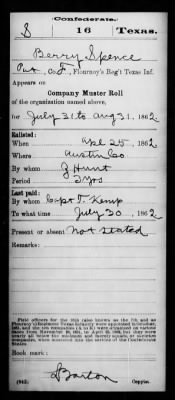 Confederate.
S 16 Texas.
Berry Spence
Pvt, Co. F, Flournoy's Reg't Texas Inf.
Appears on
Company Muster Roll
of the organization named above,
for July 31 to Aug 31, 1862
Enlisted:
When Apl 25, 1862
Where Austin Co
By whom J Hunt
Period 3 yrs
Last paid:
By whom Capt T. Kemp
To what time July 30, 1862
Present or absent Not stated
Remarks:
Book mark:
Barton
(642) Copyist.